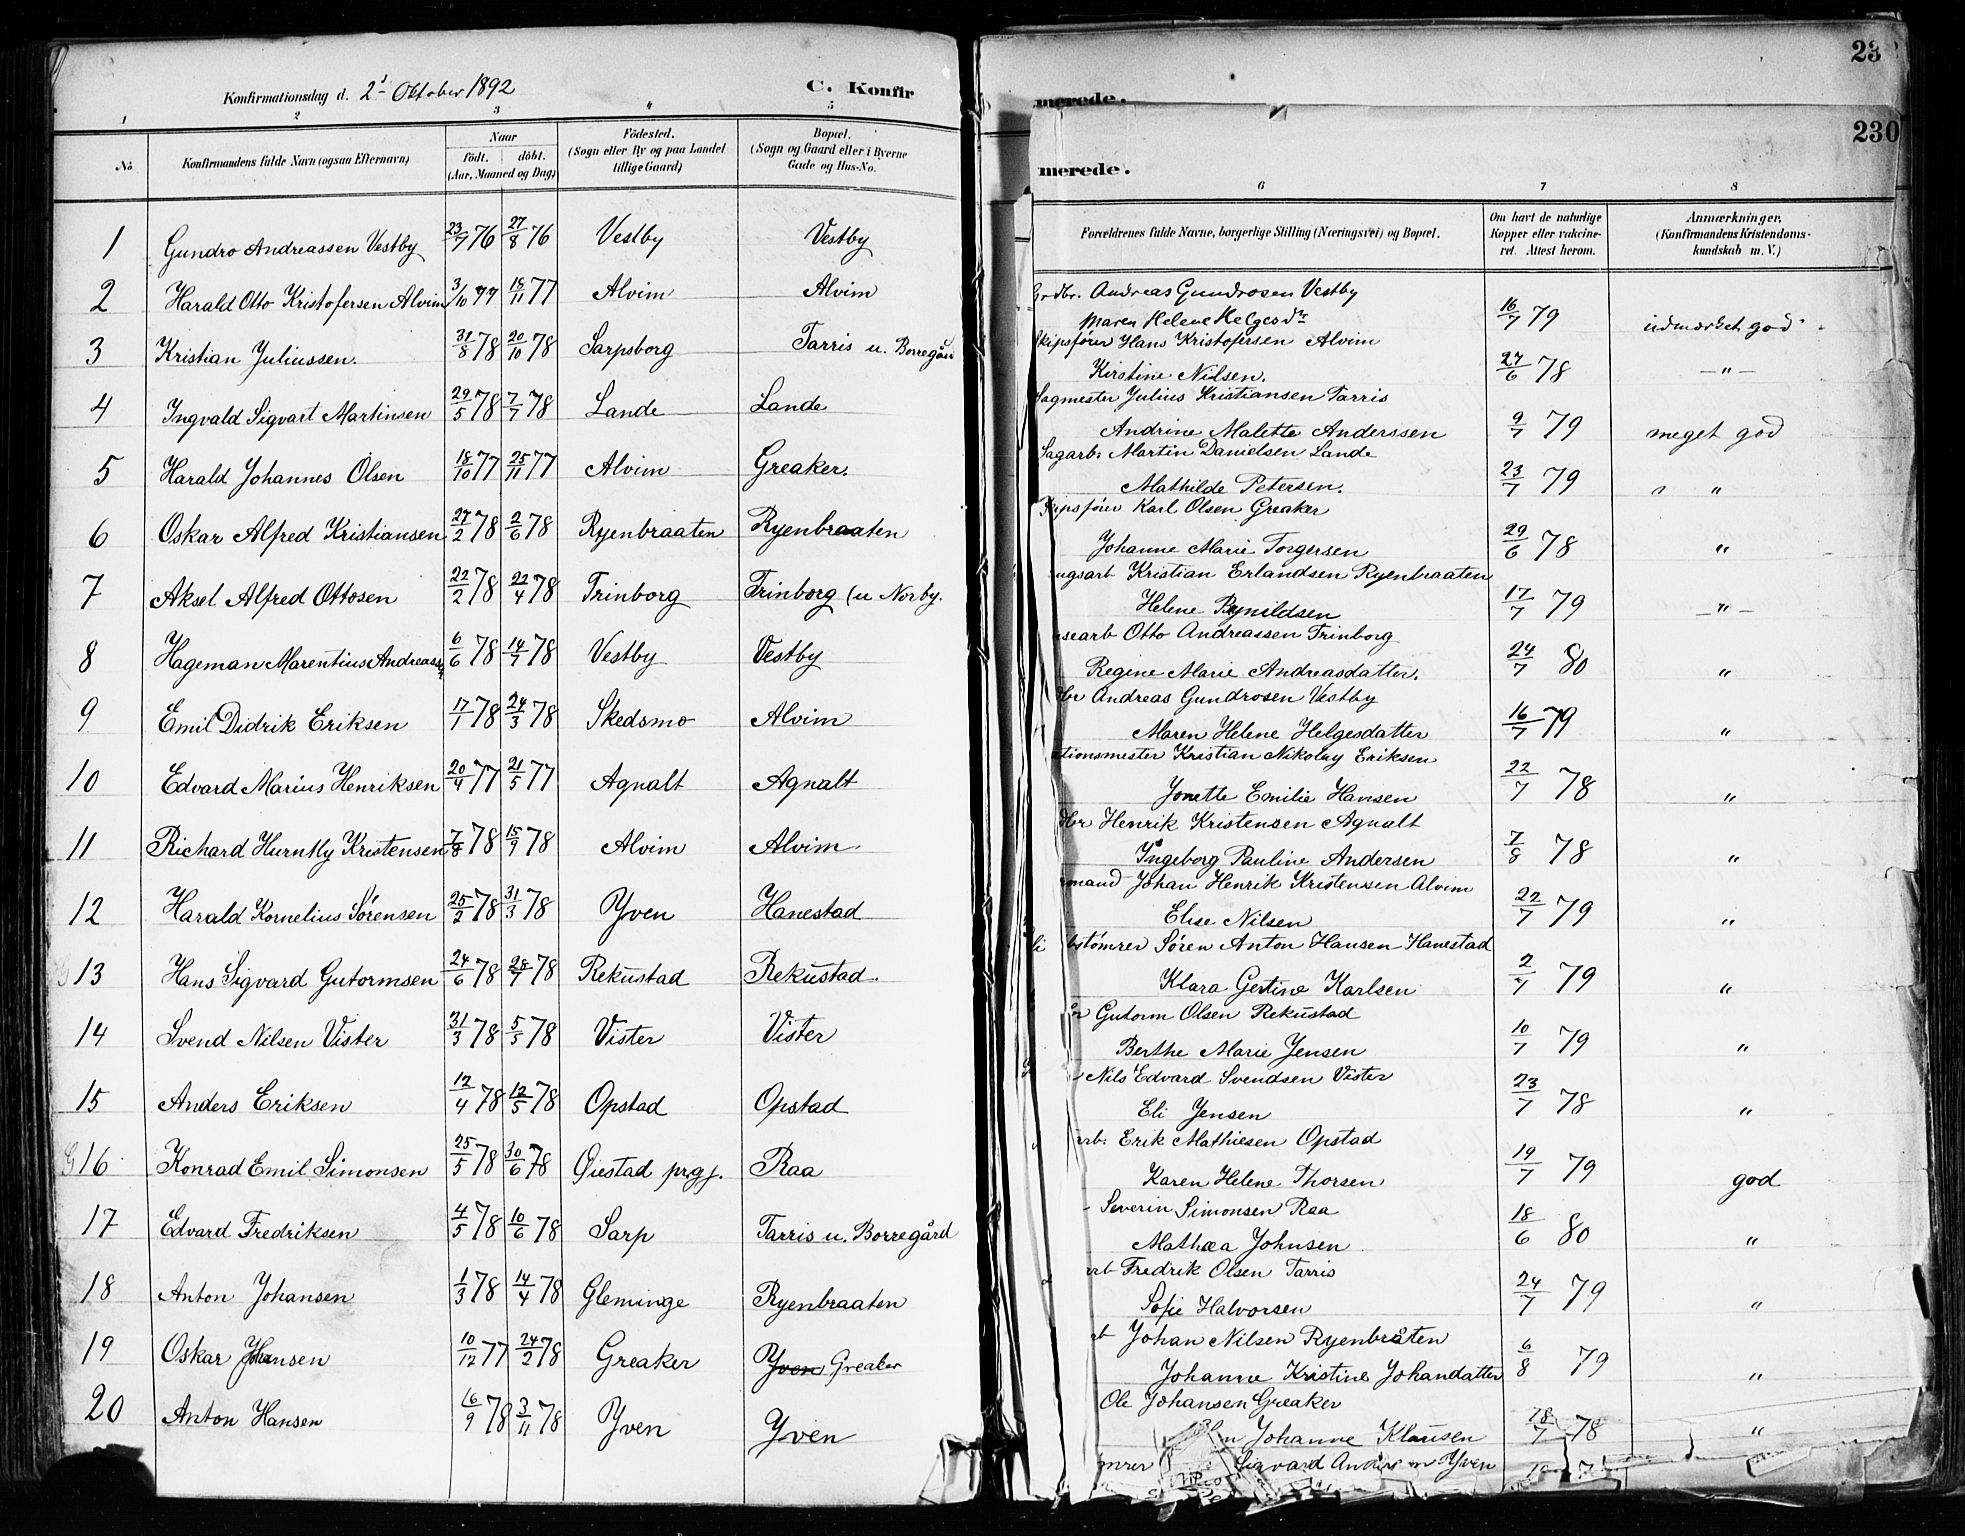 Konfirmationsdag d. 2' Oktober 1892
C. Konfir
1 2 3 " 5
No.
Konfirmandens fulde Navn (ogsaa Efternavn)
Naar
födt. döbt.
(Aar, Maaned og Dag)
Födested.
(Sogn eller By og paa Landet
tillige Gaard)
Bopæl.
(Sogn og Gaard eller i Byerne
Gade og Hus-No.
1 Gundro Andreassen Vestby 23/7 76 27/8 76 Vestby Vestby
2 Harald Otto Kristofersen Alvim 3/10 77 18/11 77 Alvim Alvim
3 Kristian Juliussen. 31/8 78 20/10 78 Sarpsborg Tarris u. Borregård
4 Ingvald Sigvart Martinsen 29/5 78 7/7 78 Lande Lande
5 Harald Johannes Olsen 18/10 77 25/11 77 Alvim Greaker.
6 Oskar Alfred Kristiansen 27/2 78 2/6 78 Ryenbraaten Ryenbraaten
7 Aksel Alfred Ottosen 22/2 78 22/4 78 Trinborg Trinborg (u Norby.
8 Hageman Marentius Andreassen 6/6 78 14/7 78 Vestby Vestby
9 Emil Didrik Eriksen 17/1 78 24/3 78 Skedsmo Alvim
10 Edvard Marius Henriksen 20/4 77 21/5 77 Agnalt Agnalt
11 Richard Hurntly Kristensen 7/8 78 15/9 78 Alvim Alvim.
12 Harald Kornelius Sørensen 25/2 78 31/3 78 Yven Hanestad
13 Hans Sigvard Gutormsen 24/6 78 28/7 78 Rekustad Rekustad.
14 Svend Nilsen Vister 31/3 78 5/5 78 Vister Vister
15 Anders Eriksen 12/4 78 12/5 78 Opstad Opstad
16 Konrad Emil Simonsen 25/5 78 30/6 78 Øiestad prgj. Raa
17 Edvard Fredriksen 4/5 78 10/6 78 Sarp Tarris u. Borregård
18 Anton Johansen 1/3 78 14/4 78 Gleminge Ryenbraaten
19 Oskar Johansen 10/12 77 24/2 78 Greaker Yven Greaker
20 Anton Hansen 16/9 78 3/11 78 Yven Yven
23
merede.
230
merede.
6 7 8
Forældrenes fulde Navne, borgerlige Stilling (Næringsvei) og Bopæl.
Om havt de naturlige
Kopper eller vakcine-
ret. Attest herom.
Anmærkninger.
(Konfirmandens Kristendoms-
kundskab m. V.)
Grdbr. Andreas Gundrosen Vestby
Maren Helene Helgesdr 16/7 79 udmærket god
Skipsfører Hans Kristofersen Alvim
Kirstine Nilsen. 27/6 78 — " —
Sagmester Julius Kristiansen Tarris
Andrine Malette Anderssen 9/7 79 meget god
Sagarb. Martin Danielsen Lande
Mathilde Petersen. 23/7 79 " "
kipsfører Karl Olsen Greaker
Johanne Marie Torgersen 29/6 78 "
ugsarb Kristian Erlandsen Ryenbraaten
Helene Rynildsen 17/7 79 — " —
searb Otto Andreassen Trinborg
Regine Marie Andreasdatter. 24/7 80 "
dbr Andreas Gundrosen Vestby
Maren Helene Helgesdatter 16/7 79 "
tionsmester Kristian Nikolay Eriksen
Jonette Emilie Hansen 22/7 78 "
dbr Henrik Kristensen Agnalt
Ingeborg Pauline Andersen 7/8 78 "
rmand Johan Henrik Kristensen Alvim
Elise Nilsen 22/7 79 "
bstømrer Søren Anton Hansen Hanestad
Klara Gertine Karlsen 2/7 79 "
Gutorm Olsen Rekustad
Berthe Marie Jensen 10/7 79 "
Nils Edvard Svendsen Vister
Eli Jensen 23/7 78 "
arb. Erik Mathiesen Opstad
Karen Helene Thorsen 19/7 79 god
Severin Simonsen Raa
Mathæa Johnsen 18/6 80 "
rb Fredrik Olsen Tarris
Sofie Halvorsen 24/7 79 "
Johan Nilsen Ryenbråten
Johanne Kristine Johandatter 6/8 79 "
Ole Johansen Greaker
Johanne Klausen 18/7 78 "
mrer Sigvard Yven